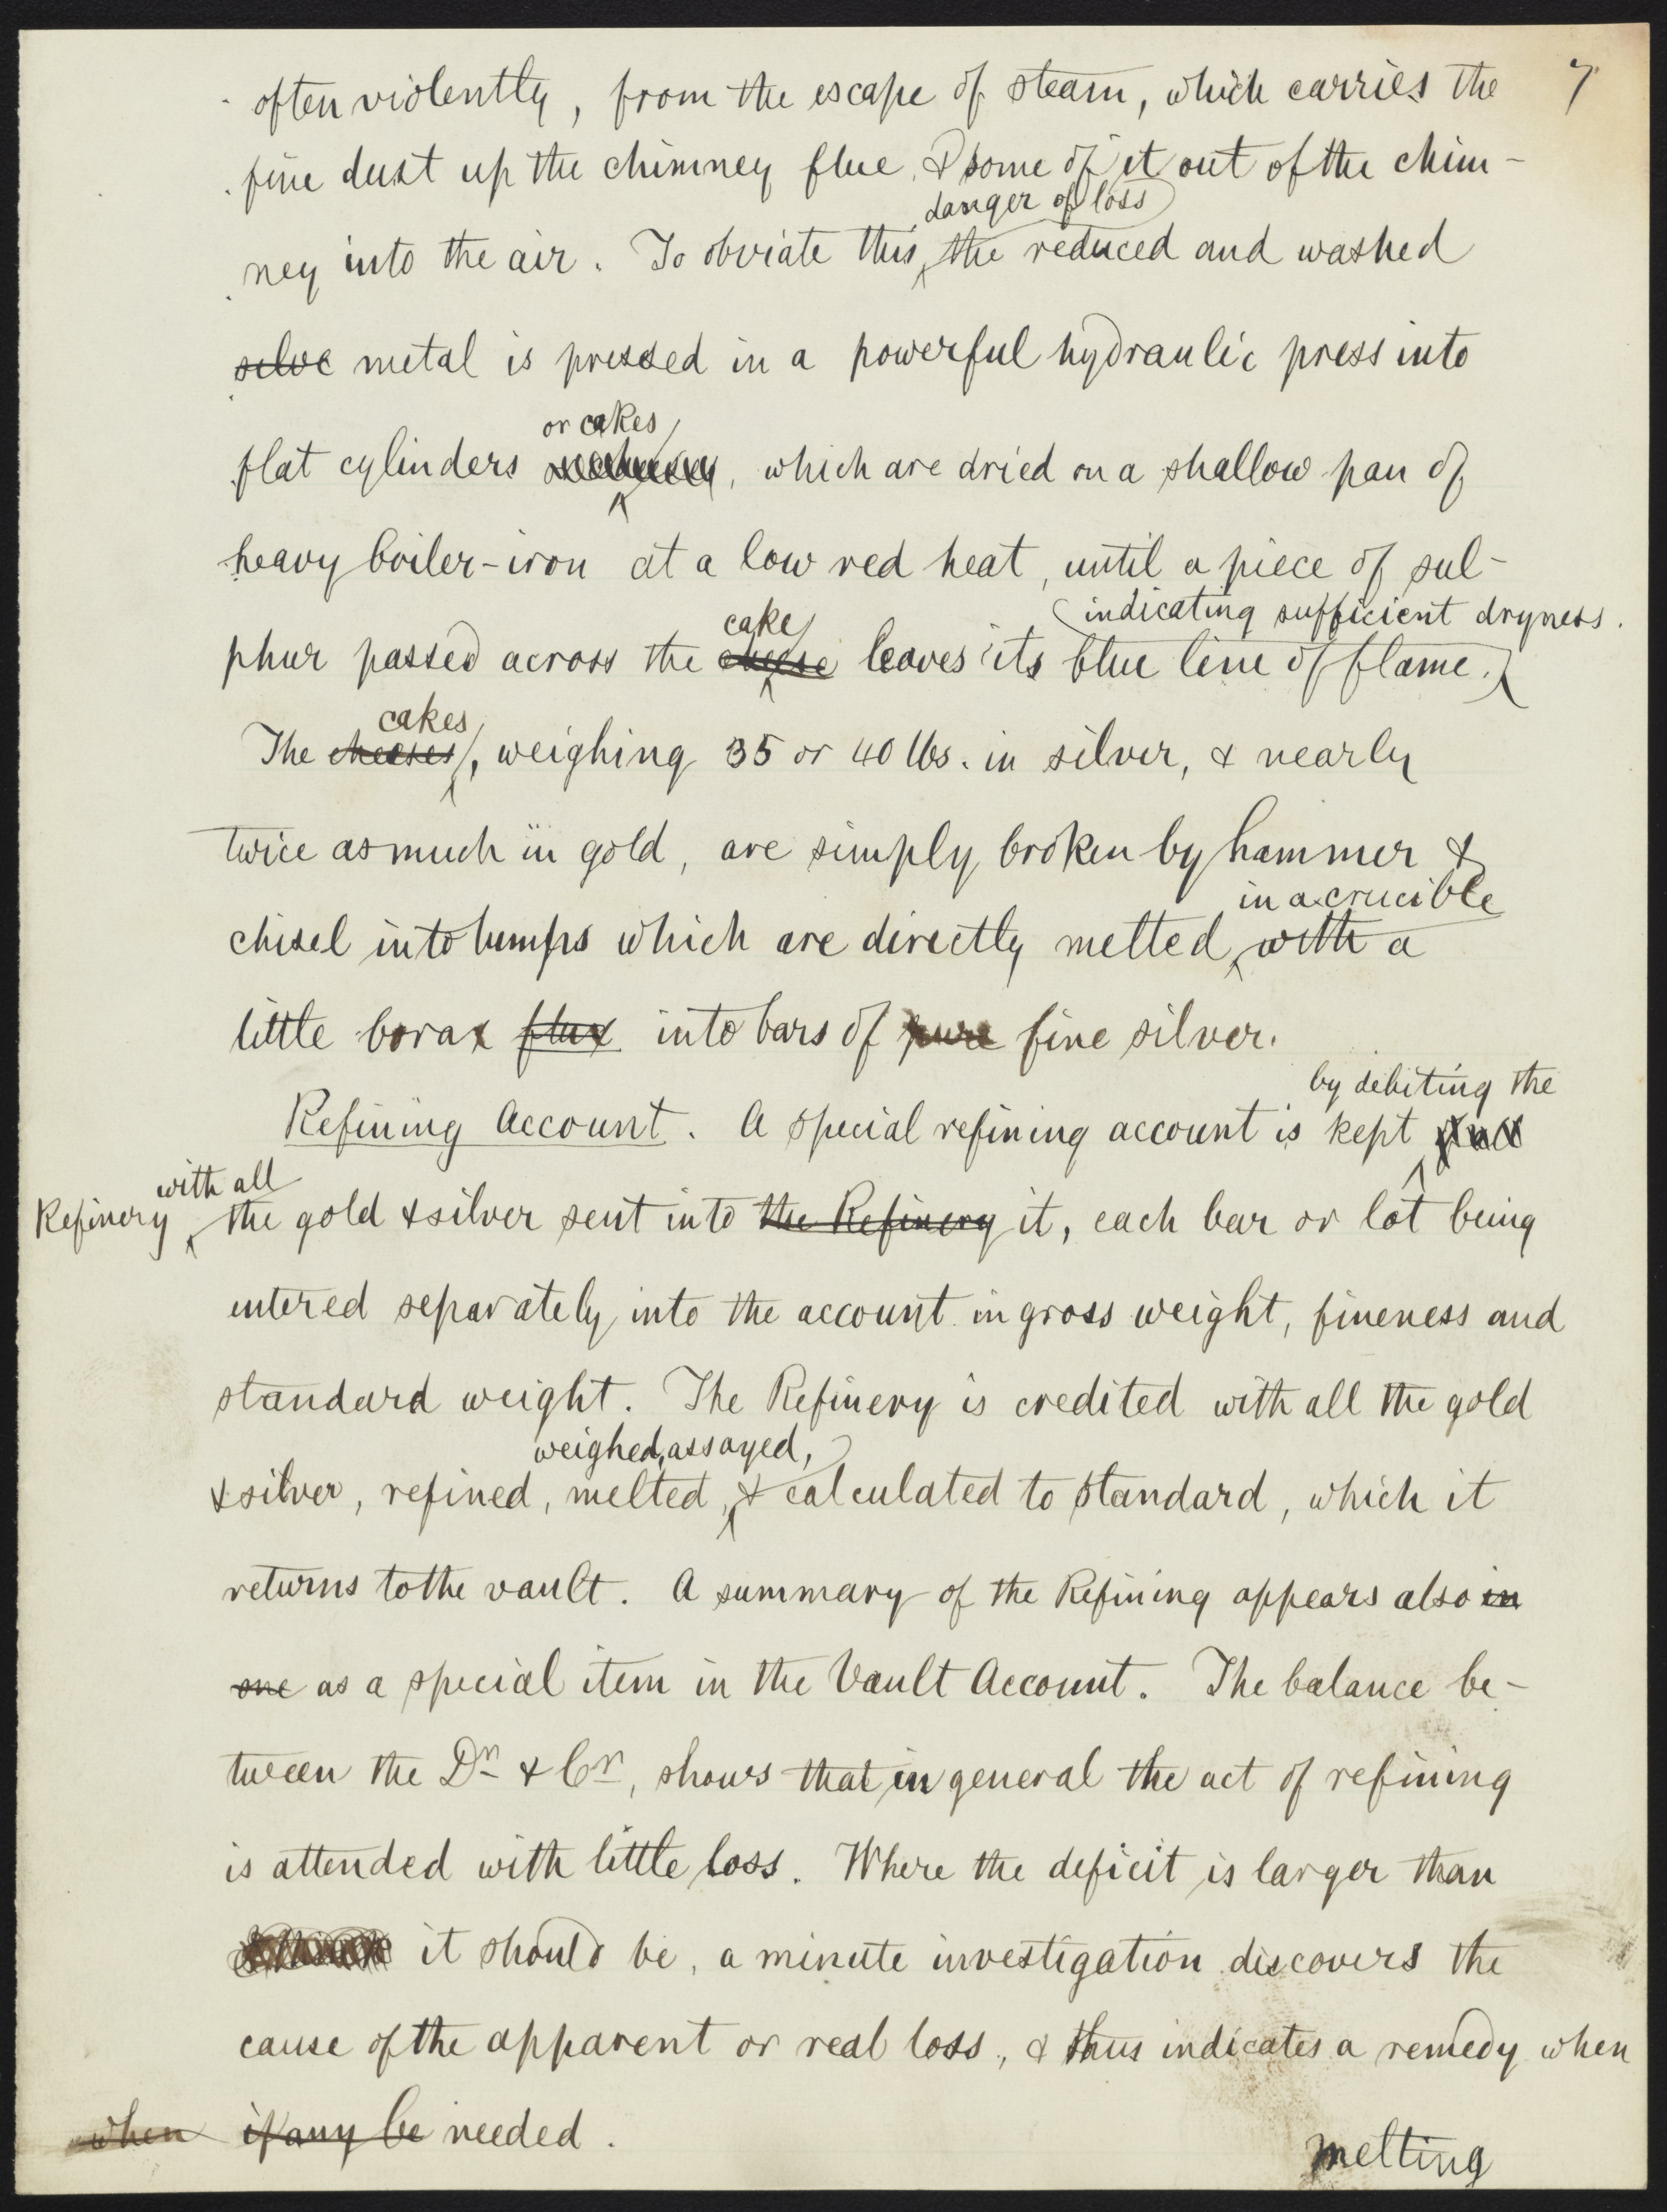 often violently, from the escape of steam, which carries the 7
fine dust up the chimney flue, & some of it out of the chim-
danger of loss
ney into the air. To obviate this, the reduced and washed
silve metal is pressed in a powerful hydraulic press into
or cakes
flat cylinders , which are dried on a shallow pan of
heavy boiler-iron at a low red heat, until a piece of sul-
indicating sufficient dryness.
cake
phur passed across the cheese leaves its blue line of flame.
cakes
The cheeses, weighing 35 or 40 lbs. in silver, & nearly
twice as much in gold, are simply broken by hammer &
in a crucible
chisel into lumps which are directly melted with a
little borax flux into bars of pure fine silver.
by debiting the
Refining Account. A special refining account is kept
with all
Refinery the gold & silver sent into the Refinery it, each bar or lot being
entered separately into the account in gross weight, fineness and
standard weight. The Refinery is credited with all the gold
weighed, assayed,
& silver, refined, melted, & calculated to standard, which it
returns to the vault. A summary of the Refining appears also in
one as a special item in the Vault Account. The balance be-
tween the Dr & Cr, shows that in general the act of refining
is attended with little loss. Where the deficit is larger than
it should be, a minute investigation discovers the
cause of the apparent or real loss, & thus indicates a remedy when
when if any be needed.
melting